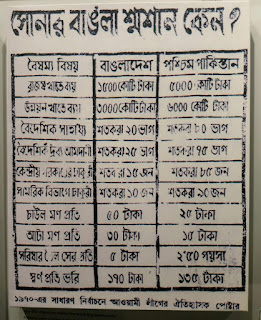 সোনার বাঙলা শ্মশান কেন?
বৈষম্য বিষয় বাঙলাদেশ পশ্চিম পাকিস্তান
রাজস্ব খাতে ব্যয় ১৫০০ কোটি টাকা ৫০০০ কোটি টাকা
উন্নয়ন খাতে ব্যয় ৩০০০ কোটি টাকা ৬০০০ কোটি টাকা
বৈদেশিক সাহায্য শতকরা ২০ ভাগ শতকরা ৮০ ভাগ
বৈদেশিক দ্রব্য আমদানী শতকরা ২৫ ভাগ শতকরা ৭৫ ভাগ
কেন্দ্রীয় সরকারের চাকরী শতকরা ১৫ জন শতকরা ৮৫ জন
সামরিক বিভাগে চাকরী শতকরা ১০ জন শতকরা ৯০ জন
চাউল মণ প্রতি ৫০ টাকা ২৫ টাকা
আটা মণ প্রতি ৩০ টাকা ১৫ টাকা
সরিষার তৈল সের প্রতি ৫ টাকা ২'৫০ পয়সা
স্বর্ণ প্রতি ভরি ১৭০ টাকা ১৩৫ টাকা
১৯৭০-এর সাধারণ নির্বাচনে আওয়ামী লীগের ঐতিহাসিক পোষ্টার